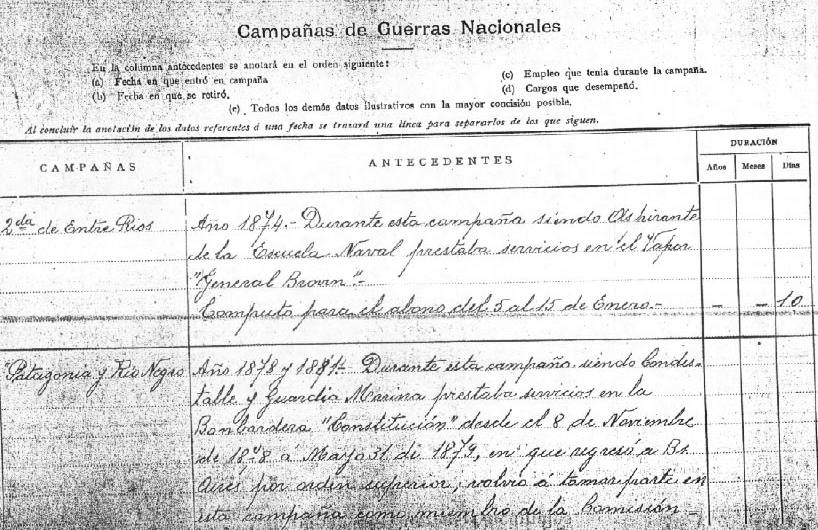 Campañas de Guerras Nacionales
En la columna antecedentes se anotará en el orden siguiente:
(a) Fecha en que entró en campaña
(b) Fecha en que se retiró.
(c) Empleo que tenia durante la campaña.
(d) Cargos que desempeñó.
(e) Todos los demás datos ilustrativos con la mayor concisión posible.
Al concluir la anotación de los datos referentes á una fecha se trazará una línea para separarlos de los que siguen.
CAMPAÑAS
ANTECEDENTES
DURACIÓN
Años Meses Dias
2da de Entre Rios
Año 1874.- Durante esta campaña siendo Aspirante
de la Escuela Naval prestaba servicios en el Vapor
"General Brown".-
Computo para el abono del 5 al 15 de Enero.- - - 10
Patagonia y Rio Negro
Año 1878 y 1881.- Durante esta campaña siendo Condes-
table y Guardia Marina prestaba servicios en la
Bombardera "Constitución" desde el 8 de Noviembre
de 1878 á Mayo 31 de 1879, en que regresó a Bs.
Aires por orden superior, volvió á tomar parte en
esta campaña como miembro de la Comisión